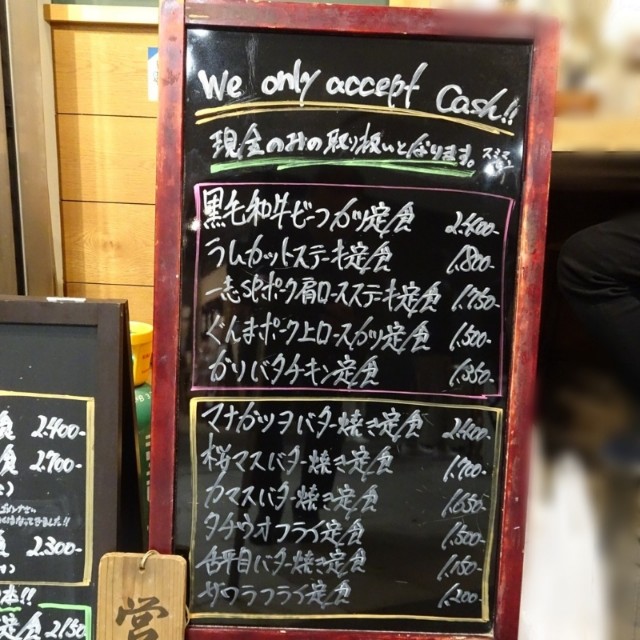 We only accept Cash!!
現金のみの取り扱いとなります。
黒毛和牛ビーフカツ定食 2,400-
ラムカットステーキ定食 1,800-
一志SPポーク肩ロースステーキ定食 1,750-
ぐんまポーク上ロースカツ定食 1,500-
ガリバタチキン定食 1,350-
マナガツオバター焼き定食 2,400-
桜マスバター焼き定食 1,700-
カマスバター焼き定食 1,650-
タチウオフライ定食 1,500-
舌平目バター焼き定食 1,150-
サワラフライ定食 1,200-
食 2,400-
食 2,700-
2,300-
定食 2,150
営